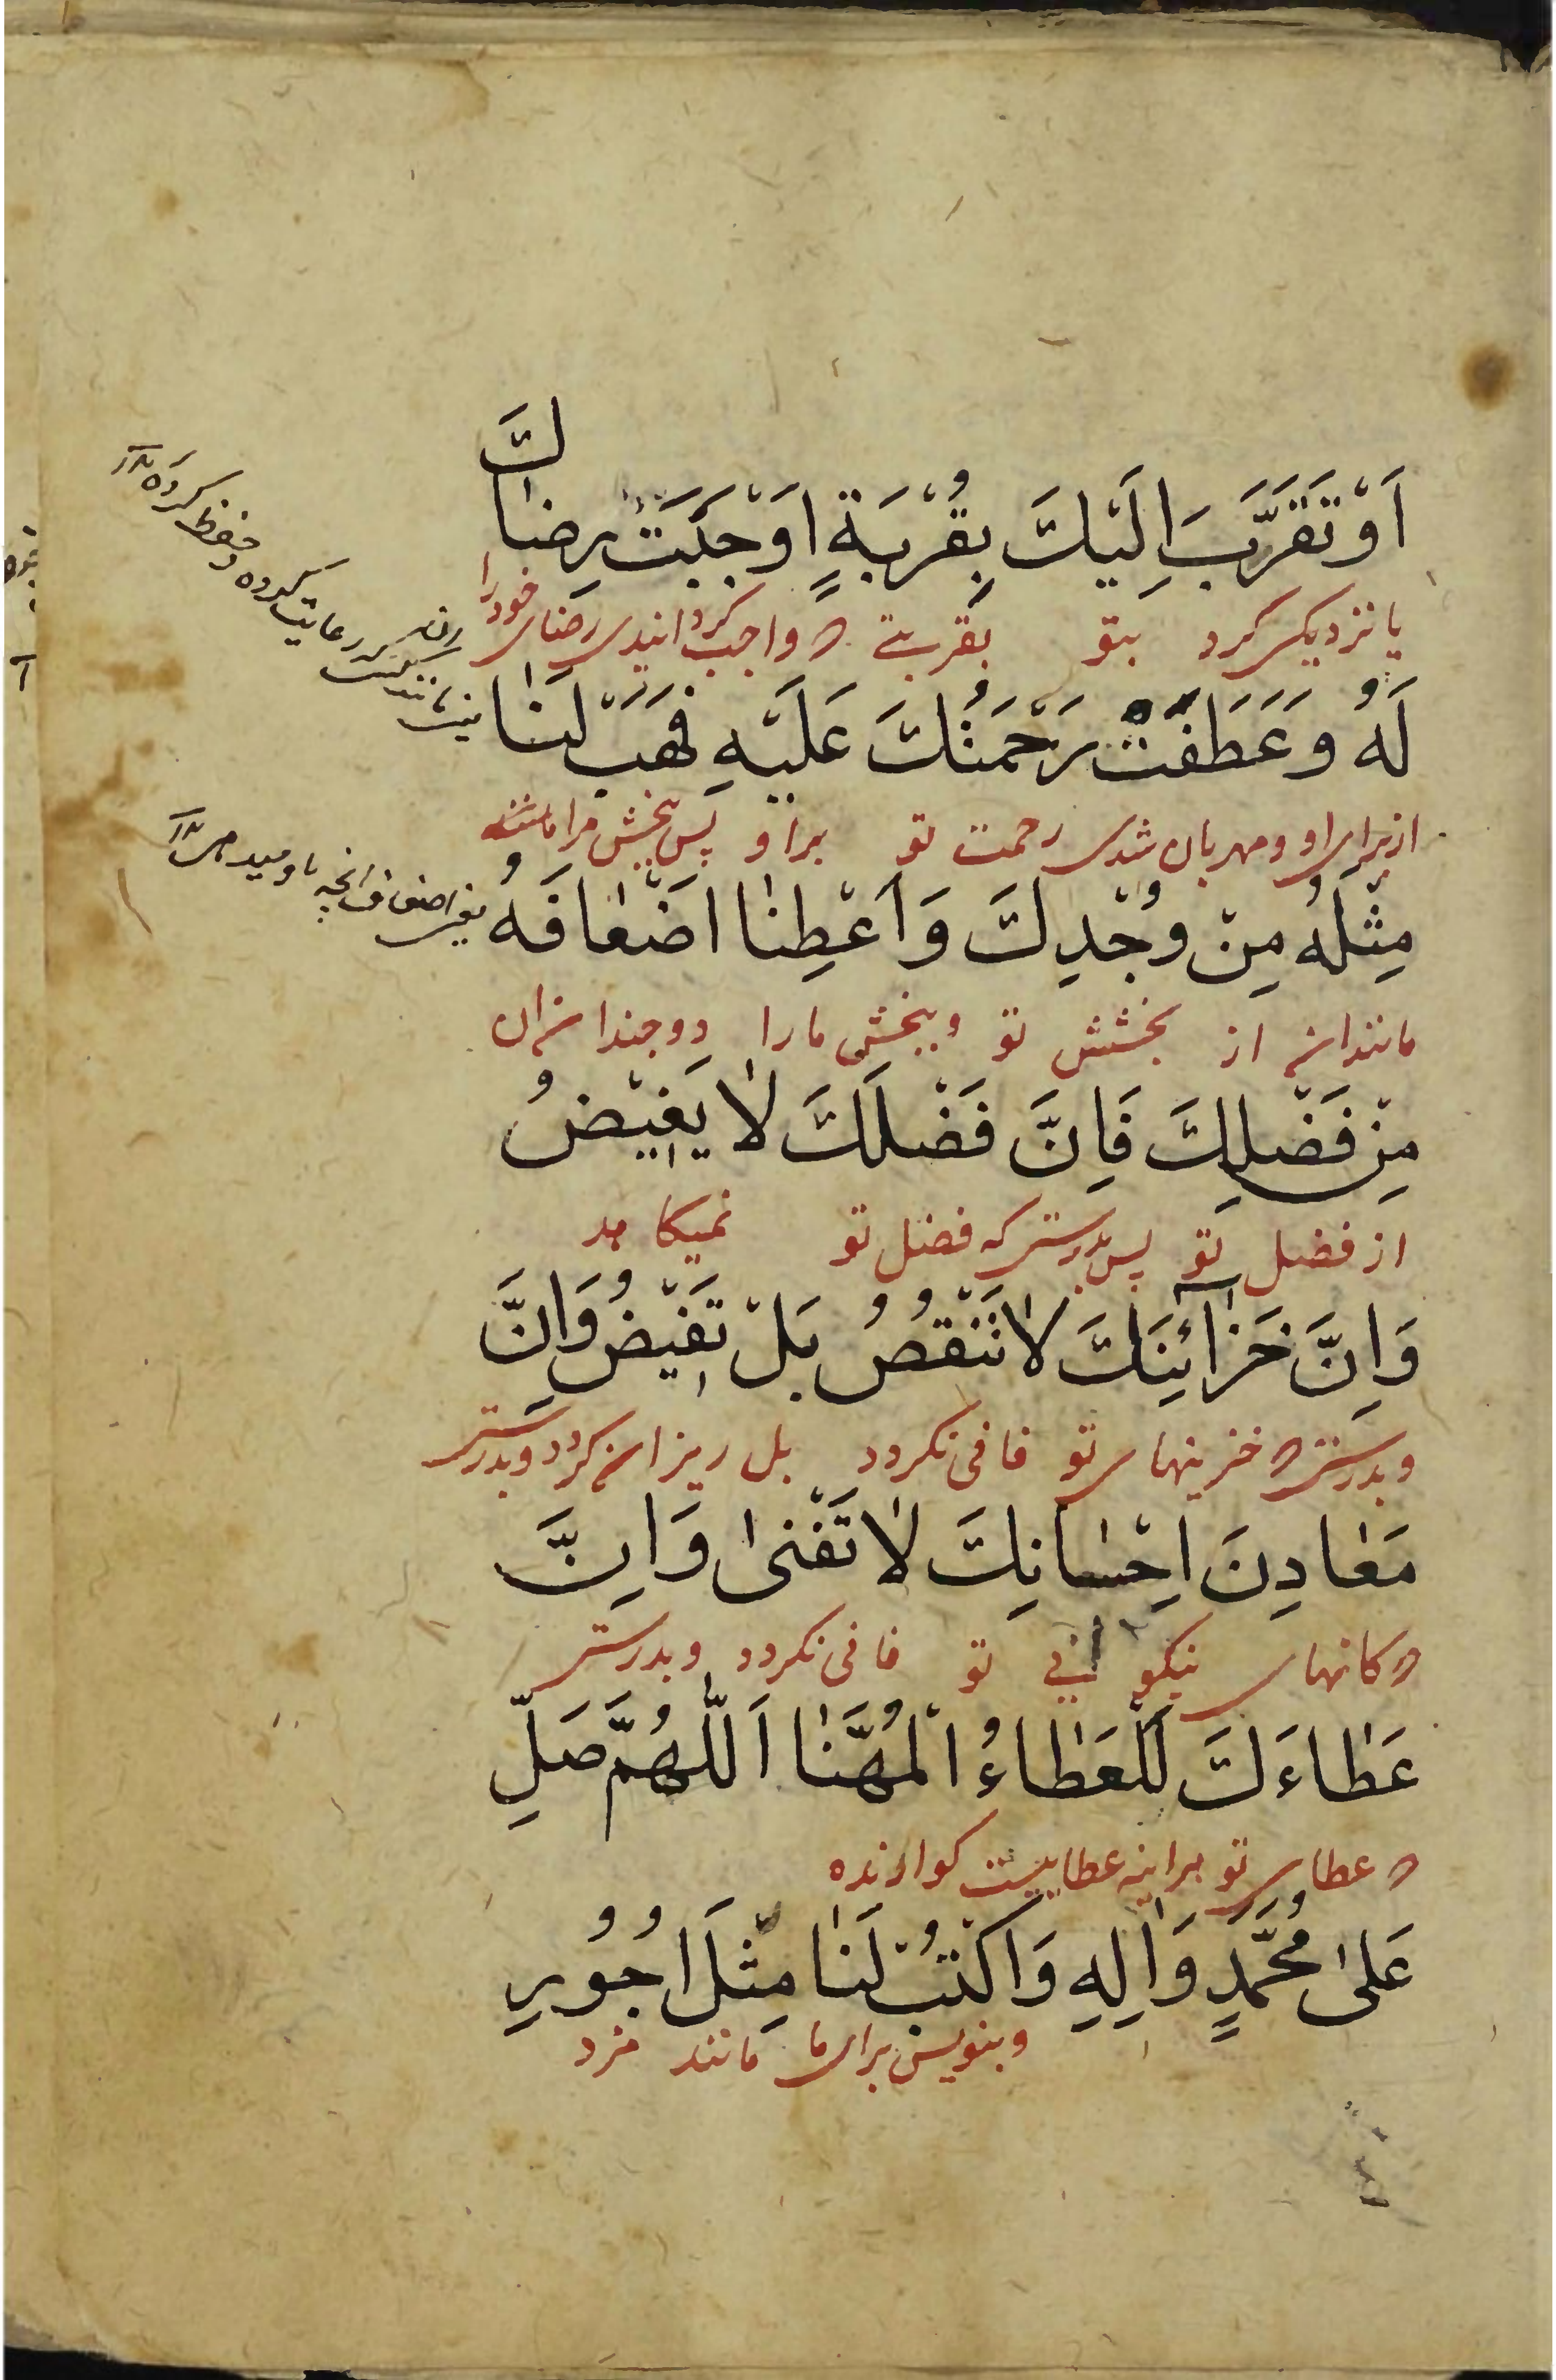 اَوْ تَقَرَّبَ اِلَيْكَ بِقُرْبَةٍ اَوْجَبَتْ رِضاكَ
یا نزدیکی کرد بتو بقربتی که واجب کردانیدی رضای خود را
لَهُ وَ عَطَفَتْ رَحْمَتُكَ عَلَيْهِ فَهَبْ لَنٰا
از برای او و مهربان شدی رحمت تو براو پس ببخش مرا
مِثْلَهُ مِنْ وُجْدِكَ وَ اَعْطِنٰا اَضْعٰافَهُ
مانند انرا از بخشش تو و ببخش ما را دو چندان ان
مِنْ فَضْلِكَ فَاِنَّ فَضْلَكَ لٰا يَغيٖضُ
از فضل تو پس بدرستی که فضل تو نمیکاهد
وَ اِنَّ خَزٰٓائِنَكَ لٰا تَنْقُصُ بَلْ تَفيٖضُ وَ اِنَّ
و بدرستی که خزینهای تو فانی نکردد بل ریزان کردد و بدرستی
مَعٰادِنَ اِحْسٰانِكَ لٰا تَفْنىٰ وَ اِنَّ
که کانهای نیکو ئی تو فانی نکردد و بدرستی
عَطٰاءَكَ لَلْعَطٰاءُ الْمُهَنَّا اَللّٰهُمَّ صَلِّ
که عطای تو هراینه عطاییست کوارنده
عَلىٰ مُحَمَّدٍ وَ اٰلِهِ وَ اكْتُبْ لَنٰا مِثْلَ اُجُورِ
و بنویس برای ما مانند مزد
رعایت کرده و حفظ کرده ١٢